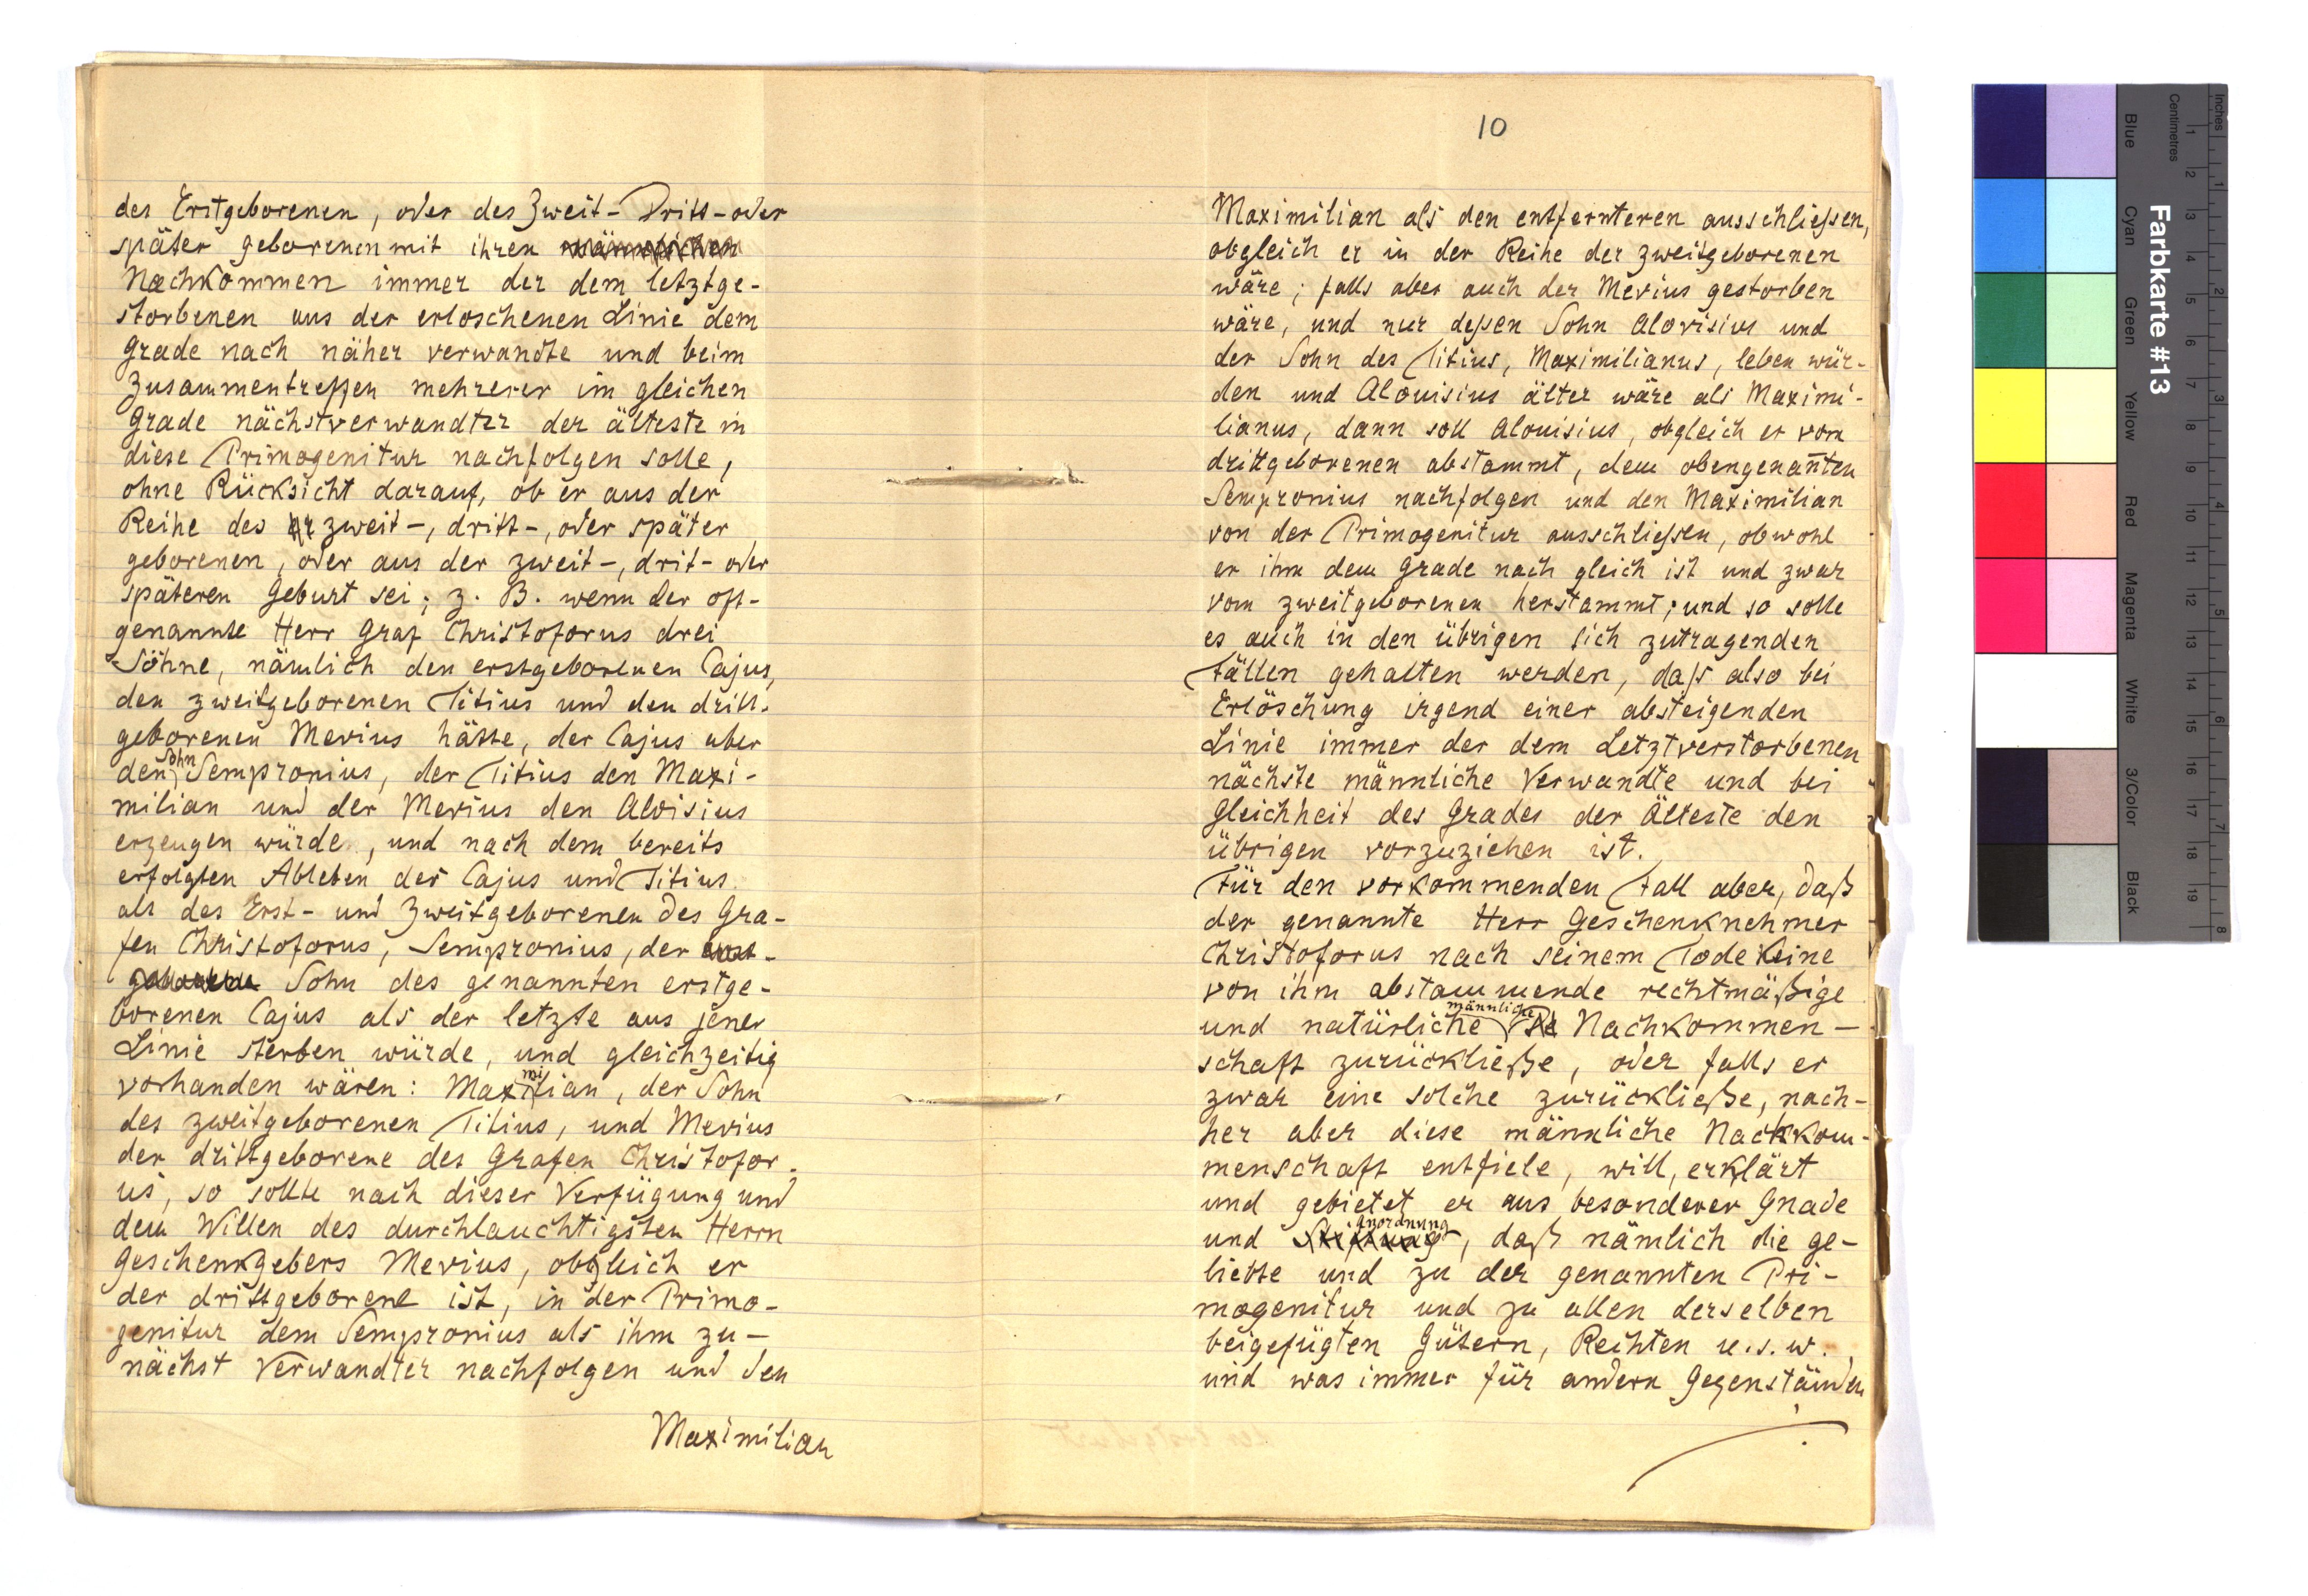 des Erstgeborenen, oder des Zweit- Dritt- oder
später geborenen mit ihren männlichen
Nachkommen immer der dem letztge-
storbenen aus der erloschenen Linie dem
Grade nach näher verwandte und beim
Zusammentreffen mehrerer im gleichen
Grade nächstverwandter der älteste in
diese Primogenitur nachfolgen solle,
ohne Rücksicht darauf, ob er aus der
Reihe des zweit-, dritt-, oder später
geborenen, oder aus der zweit-, drit- oder
späteren Geburt sei; z. B. wenn der oft-
genannte Herr Graf Christoforus drei
Söhne, nämlich den erstgeborenen Cajus,
den zweitgeborenen Titius und den dritt-
geborenen Mevius hätte, der Cajus aber
den Sohn Sempronius, der Titius den Maxi-
milian und der Mevius den Aloisius
erzeugen würde, und nach dem bereits
erfolgten Ableben des Cajus und Titius
als des Erst- und Zweitgeborenen des Gra-
fen Christoforus, Sempronius, der erst-
geborene Sohn des genannten erstge-
borenen Cajus als der letzte aus jener
Linie sterben würde, und gleichzeitig
vorhanden wären: Maximilian, der Sohn
des zweitgeborenen Titius, und Mevius
der drittgeborene des Grafen Christofor-
us, so sollte nach dieser Verfügung und
dem Willen des durchlauchtigsten Herrn
Geschenkgebers Mevius, obgleich er
der drittgeborene ist, in der Primo-
genitur dem Sempronius als ihm zu-
nächst Verwandter nachfolgen und den
Maximilian
10
Maximilian als den entfernteren ausschließen,
obgleich er in der Reihe der zweitgeborenen
wäre; falls aber auch der Mevius gestorben
wäre, und nur deßen Sohn Alovisius und
der Sohn des Titius, Maximilianus, leben wür-
den und Alouisius älter wäre als Maximi-
lianus, dann soll Alouisius, obgleich er vom
drittgeborenen abstammt, dem obengenan̄ten
Sempronius nachfolgen und den Maximilian
von der Primogenitur ausschließen, obwohl
er ihm dem Grade nach gleich ist und zwar
vom zweitgeborenen herstammt; und so solle
es auch in den übrigen sich zutragenden
Fällen gehalten werden, daß also bei
Erlöschung irgend einer absteigenden
Linie immer der dem Letztverstorbenen
nächste männliche Verwandte und bei
Gleichheit des Grades der Älteste den
übrigen vorzuziehen ist.
Für den vorkommenden Fall aber, daß
der genannte Herr Geschenknehmer
Christoforus nach seinem Tode keine
von ihm abstammende rechtmäßige
und natürliche männliche Nachkommen-
schaft zurückließe, oder falls er
zwar eine solche zurückließe, nach-
her aber diese männliche Nachkom-
menschaft entfiele, will, erklärt
und gebietet er aus besonderer Gnade
und Stiftung Anordnung, daß nämlich die ge-
liebte und zu der genannten Pri-
mogenitur und zu allen derselben
beigefügten Gütern, Rechten u.s.w.
und was immer für andern Gegenständen